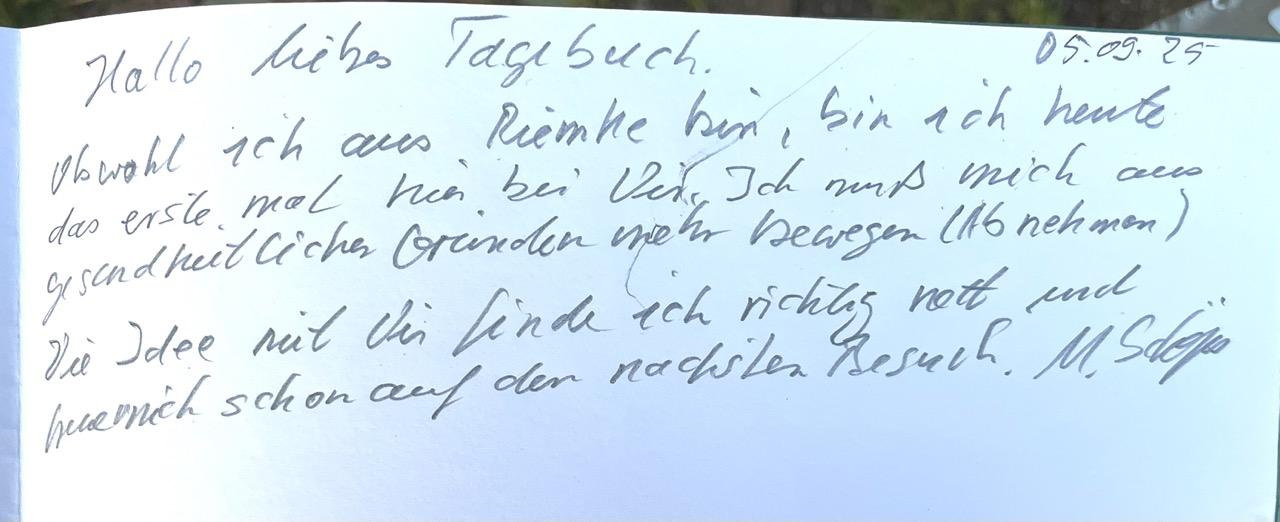 Hallo liebes Tagebuch. 05.09.25
Obwohl ich aus Riemke bin, bin ich heute
das erste mal hier bei Dir. Ich muß mich aus
gesundheitlichen Gründen mehr bewegen (Abnehmen)
Die Idee mit Dir finde ich richtig nett und
freue mich schon auf den nächsten Besuch. M.